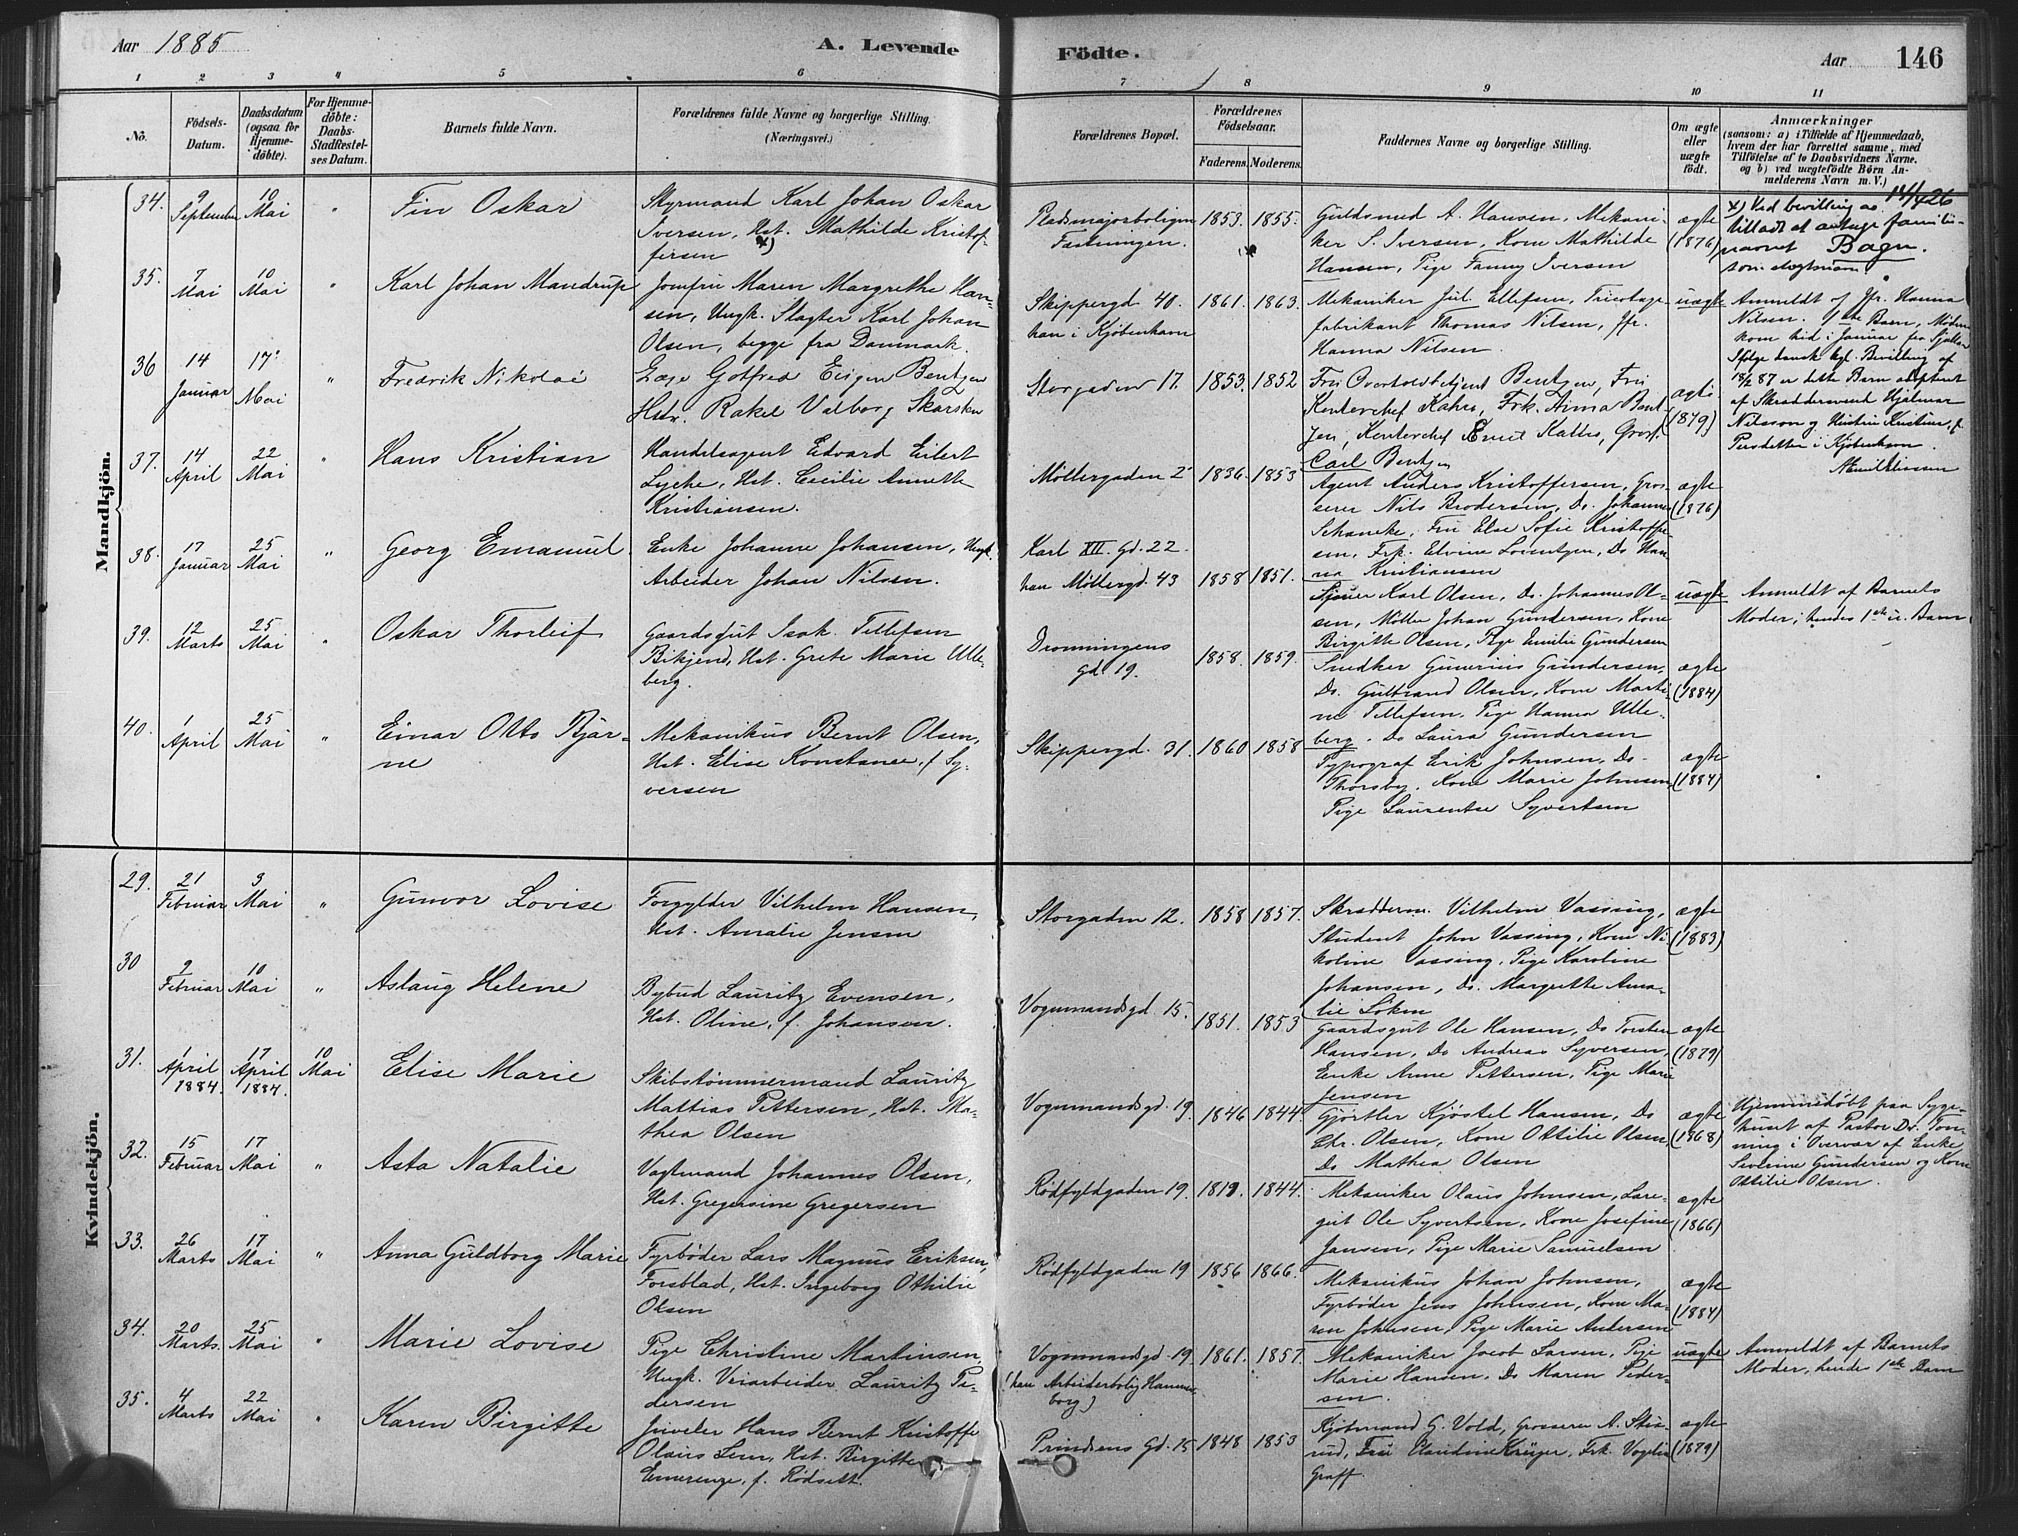 Aar 1885
A. Levende
Födte.
Aar
146
1
2
3
4
5
6
7
8
9
10
11
No.
Födsels-
Datum.
Daabsdatum
(ogsaa for
Hjemme-
döbte).
For Hjemme-
döbte:
Daabs-
Stadfæstel-
ses Datum.
Barnets fulde Navn.
Forældrenes fulde Navne og borgerlige Stilling.
(Næringsvei.)
Forældrenes Bopæl.
Forældrenes
Födselsaar.
Faderens.
Moderens.
Faddernes Navne og borgerlige Stilling.
Om ægte
eller
uægte
födt.
Anmærkninger
(saasom: a) i Tilfælde af Hjemmedaab,
hvem der har forrettet samme, med
Tilföielse af to Daabsvidners Navne.
og b) ved uægtefödte Börn An-
melderens Navn m. V.)
Mandkjön.
34.
9
September
10
Mai
"
Fin Oskar
Styrmand Karl Johan Oskar
Iversen, Hst. Mathilde Kristof-
fersen x)
Pladsmajorboligen
Fæstningen.
1853.
1855.
Guldsmed A. Hansen, Mekani-
ker S. Iversen, Kone Mathilde
Hansen, Pige Fanny Iversen
ægte
(1876)
x) Ved bevilling av 14/4 26
tilladt at antage familie-
navnet Bagn.
som slegtsnavn.
35.
7
Mai
10
Mai
"
Karl Johan Mandrup
Jomfru Maren Margrethe Han-
sen, Ungk. Slagter Karl Johan
Olsen, begge fra Danmark.
Skippergd 40.
han i Kjöbenhavn
1861.
1863.
Mekaniker Jul. Ellefsen, Tricotage-
fabrikant Thomas Nilsen, Jfr.
Hanna Nilsen.
uægte
Anmeldt af Jfr. Hanna
Nilsen. 1ste Barn, Moderen
kom hid i Januar fra Sjælland
Ifølge dansk kgl. Bevilling af
18/2 87 er dette Barn adopteret
af Skræddersvend Hjalmar
Nilsson og Hustru Kristine, f.
Persdatter i Kjöbenhavn.
36
14
Januar
17
Mai
"
Fredrik Nikolai
Læge Gotfred Eugen Bentzen
Hstr. Rakel Valborg Skarsten
Storgaden 17.
1853.
1852
Fru Overtoldbetjent Bentzen, Fru
Kontorchef Kahrs, Frk. Anna Bent-
zen, Kontorchef Emil Kahrs, Gross.
Carl Bentzen
ægte
(1879)
37.
14
April
22
Mai
"
Hans Kristian
Handelsagent Edvard Eilert
Lyche, Hst. Cecilie Annette
Kristiansen.
Möllergaden 2
1836.
1853
Agent Anders Kristoffersen, Gros-
serer Nils Brodersen, Do. Johannes
Schancke, Fru Else Sofie Kristoffer-
sen, Frk. Elvine Lorentzen, Do Han-
na Kristiansen
ægte
(1876)
38.
17
Januar
25
Mai
"
Georg Emanuel
Enke Johanne Johansen, Ungk.
Arbeider Johan Nilsen.
Karl XII. Gd. 22.
han Möllergd. 43
1858
1851.
Sjauer Karl Olsen, Do. Johannes Ol-
sen, Möller Johan Gundersen, Kone
Birgitte Olsen, Pige Emilie Gundersen
uægte
Anmeldt af Barnets
Moder; hendes 1ste u. Barn
39.
12
Marts
25
Mai
"
Oskar Thorleif
Gaardsgut Isak Tellefsen
Bikjend, Hst. Grete Marie Ulle-
berg.
Dronningens
Gd 19.
1858.
1859.
Snedker Gunerius Gundersen,
Do. Gulbrand Olsen, Kone Marti-
ne Tellefsen, Pige Hanna Ulle-
berg. Do Laura Gundersen
ægte
(1884)
40.
1
April
25
Mai
"
Einar Otto Bjar-
ne
Mekanikus Bernt Olsen,
Hst. Elise Konstance, f Sy-
versen
Skippergd. 31.
1860
1858
Typograf Erik Johnsen, Do.
Thorsby, Kone Marie Johnsen,
Pige Laurentse Syvertsen
ægte
(1884)
Kvindekjön.
29.
21
Februar
3
Mai
"
Gunvor Lovise
Forgylder Vilhelm Hansen,
Hst. Amalie Jensen
Storgaden 12.
1858
1857.
Skrædderm. Vilhelm Vassing,
Student John Vassing, Kone Ni-
koline Vassing, Pige Karoline
Johansen, Do. Margrethe Ama-
lie Löken
ægte
(1883)
30
9
Februar
10
Mai
"
Aslaug Helene
Bybud Lauritz Evensen,
Hst. Oline, f. Johansen.
Vognmandsgd. 15.
1851.
1853
Gaardsgut Ole Hansen, Do Torsten
Hansen, Do Andreas Syversen,
Enke Anne Pettersen, Pige Marie
Jensen
ægte
(1879)
31.
1
April
1884.
17
April
1884.
10
Mai
Elise Marie
Skibstömmermand Lauritz
Mattias Pettersen, Hst. Ma-
thea Olsen
Vognmandsgd. 19.
1846
1844
Gjörtler Kjöstel Hansen, Do
Chr. Olsen, Kone Ottilie Olsen
Do Mathea Olsen
ægte
(1868)
Hjemmedöbt paa Syge-
huset af Pastor Dr. Tön-
ning i Overvær af Enke
Severine Gundersen og Kone
Ottilie Olsen.
32.
15
Februar
17
Mai
"
Asta Natalie
Vagtmand Johannes Olsen,
Hst. Gregersine Gregersen
Rödfyldgaden 19.
1819.
1844.
Mekaniker Olaus Johnsen, Lære-
gut Ole Syvertsen, Kone Josefine
Jansen, Pige Marie Samuelsen
ægte
(1866)
33.
26
Marts
17
Mai
"
Anna Guldborg Marie
Fyrböder Lars Magnus Eriksen,
Forsblad, Hst. Ingeborg Othilie
Olsen
Rödfyldgaden 19
1856
1866.
Mekanikus Johan Johnsen,
Fyrböder Jens Johnsen, Kone Ma-
ren Johnsen, Pige Marie Andersen
ægte
(1884)
34.
20
Marts.
25
Mai
"
Marie Lovise
Pige Christine Martinsen
Ungk. Veiarbeider Lauritz Pe-
dersen
Vognmandsgd 19.
(han Arbeiderbolig Hammers-
borg)
1861.
1857.
Mekaniker Jacob Larsen, Pige
Marie Hansen, Do Maren Peder-
sen.
uægte
Anmeldt af Barnets
Moder, hendes 1ste Barn
35.
4
Marts
22
Mai
"
Karen Birgitte
Juveler Hans Bernt Kristoffer
Olaus Lem, Hst. Birgitte
Emerenze, f. Rödsett.
Prindsens Gd. 15
1848
1853
Kjöbmand G. Vold, Grosserer A. Sten-
rud, Fru Claudine Krüger, Frk. Vogelia
Graff.
ægte
(1879)